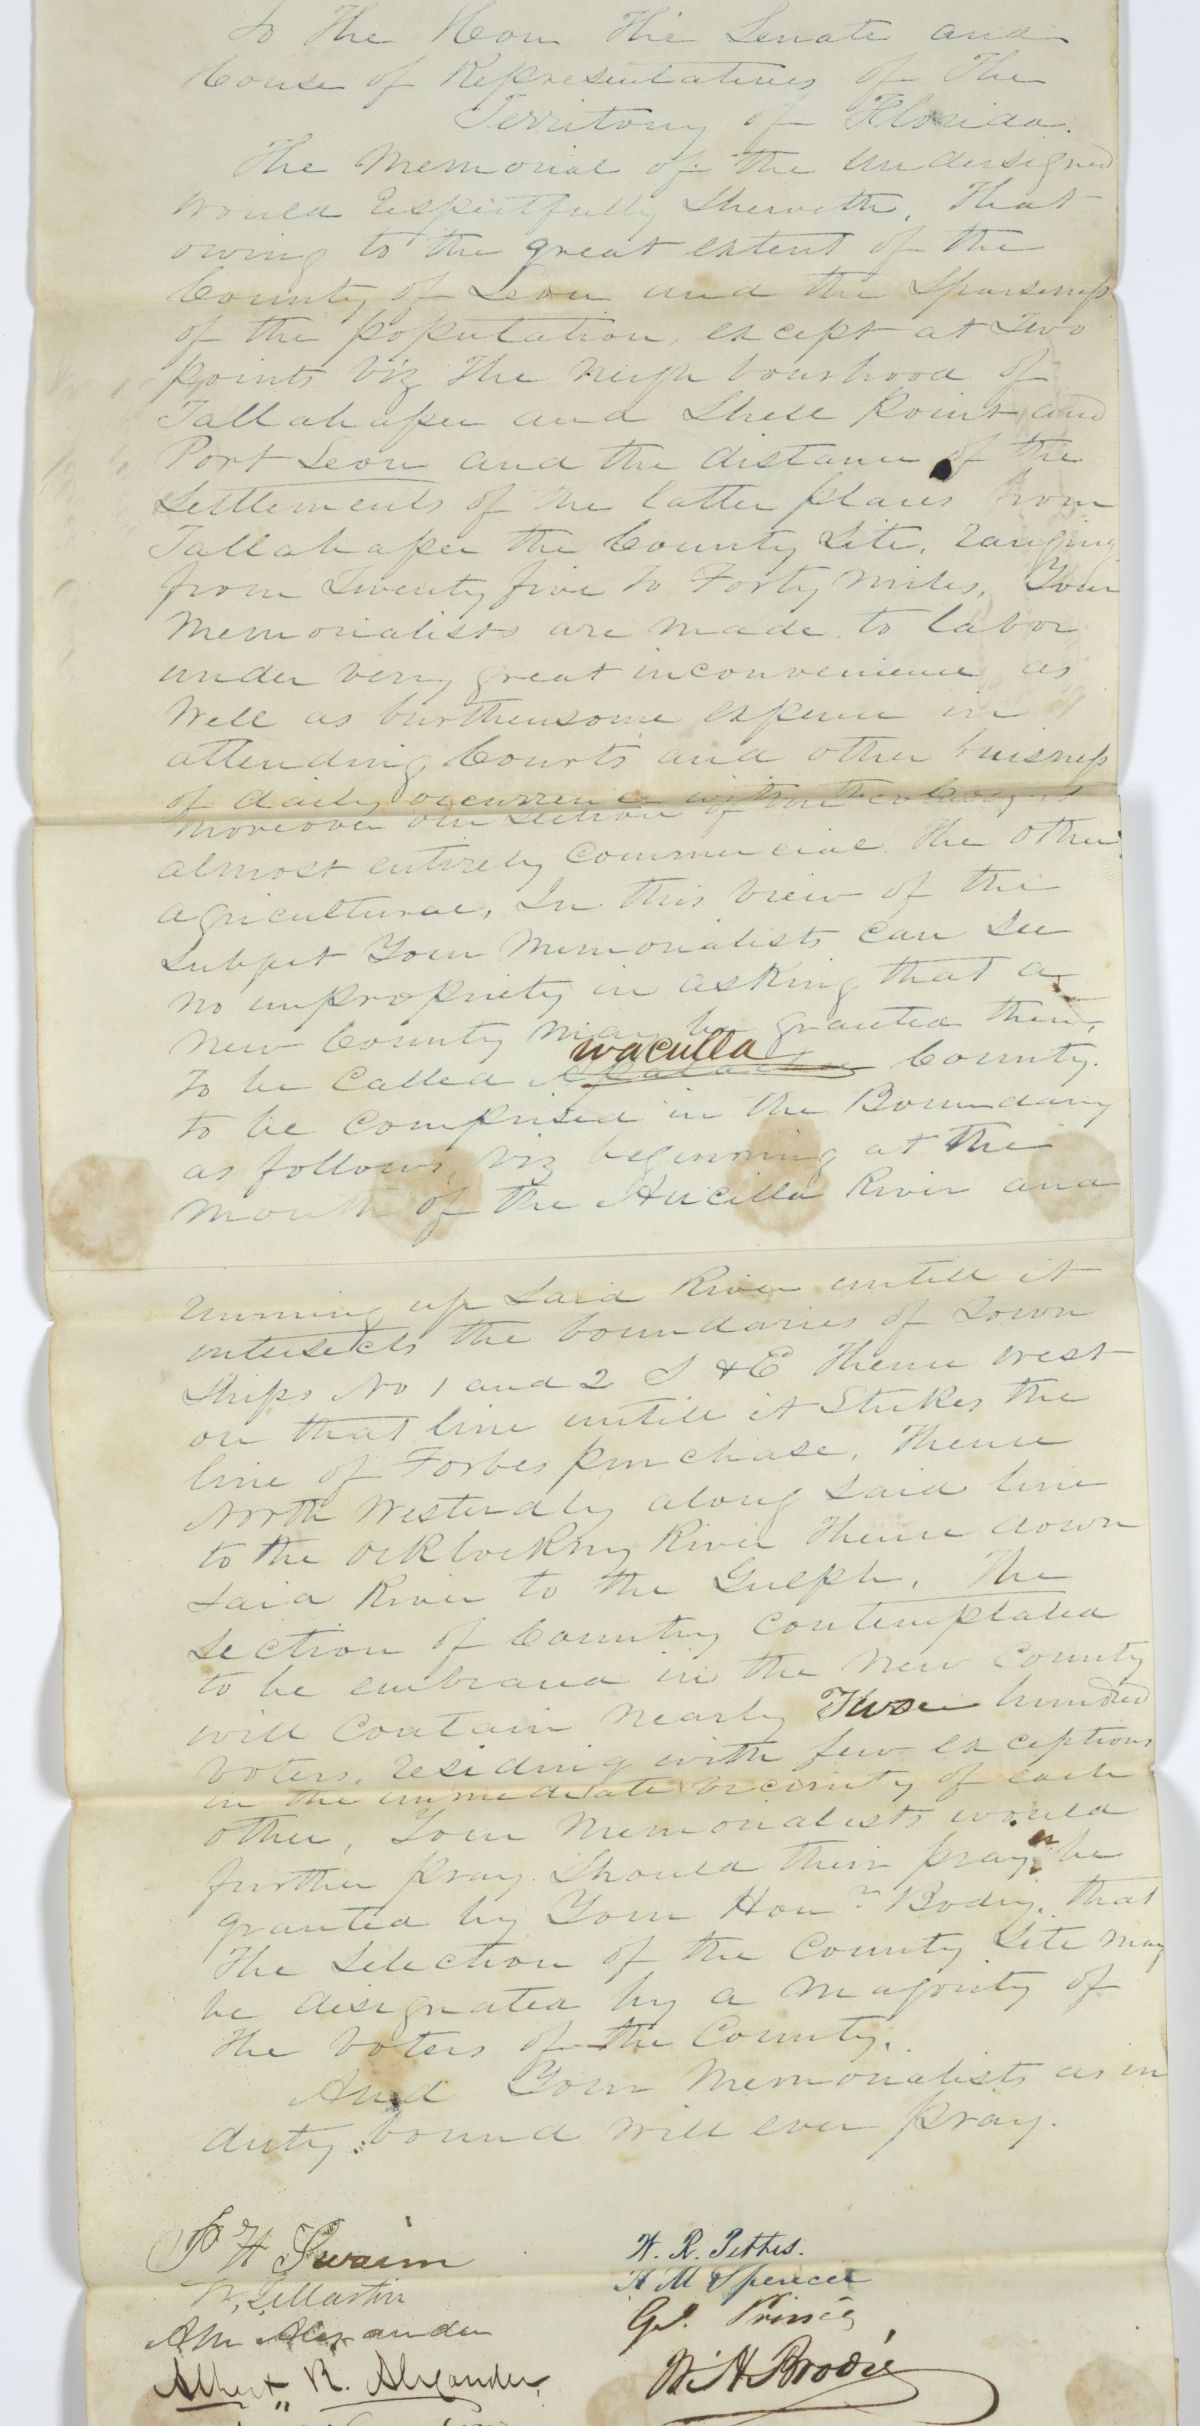 To The Hon The Senate and
House of Representatives of The
Territory of Florida.
The Memorial of the Undersigned
would Respectfully Sheweth, That
owing to the great extent of the
County of Leon and the Sparseness
of the population, except at Two
points viz The neighbourhood of
Tallahassee and Shell Point and
Port Leon and the distance of the
Settlements of the latter places from
Tallahassee the County Site, ranging
from Twenty five to Forty miles, Your
Memorialists are made to labor
under very great inconvenience as
Well as burthensome expence in
attending Courts and other buisness
of daily occurrence
moreover one section of is
almost entirely Commercial the other
agricultural, In this view of the
Subject Your Memorialists can See
no impropriety in asking that a
new County may be granted them,
waculla
To be Called County.
to be comprised in the Boundary
as follows, viz beginning at the
mouth of the Aucilla River and
running up Said River untill it
intersects the boundaries of Town
Ships No 1 and 2 S & E Thence west
on that line untill it Strikes the
line of Forbes purchase, Thence
North Westerdly along Said line
to the Ocklockny River Thence down
Said River to the Gulph. The
Section of Country Contemplated
to be embraced in the New County
will Contain nearly Three hundred
voters, residing with few exceptions
in the immediate vicinity of each
other, Your Memorialists would
further pray Should their prayr be
granted by Your Honr. Body, that
The Selection of the County Site may
be designated by a Majority of
the Voters of the County.
And Your Memorialists as in
duty bound will ever pray.
H Swaim
W. R. Pettes.
H M Spencer
Alexander
Prince
Albert R. Alexander,
W H Brodie